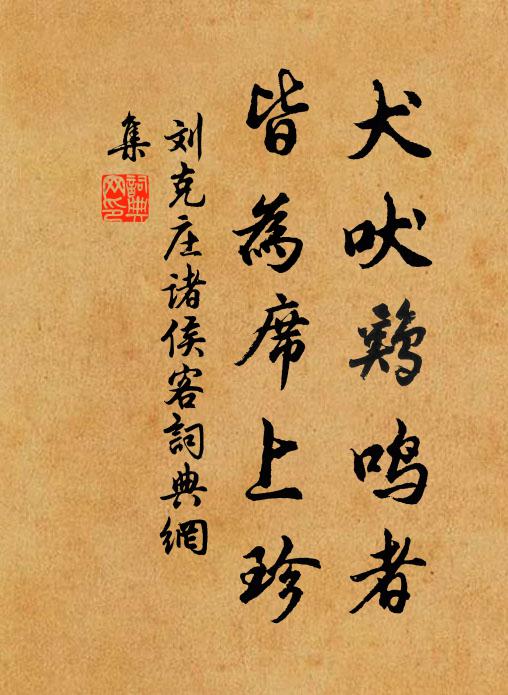 犬吠鷄鳴者
皆為席上珍
刘克庄諸侯客詞典網
集
詞典
网印